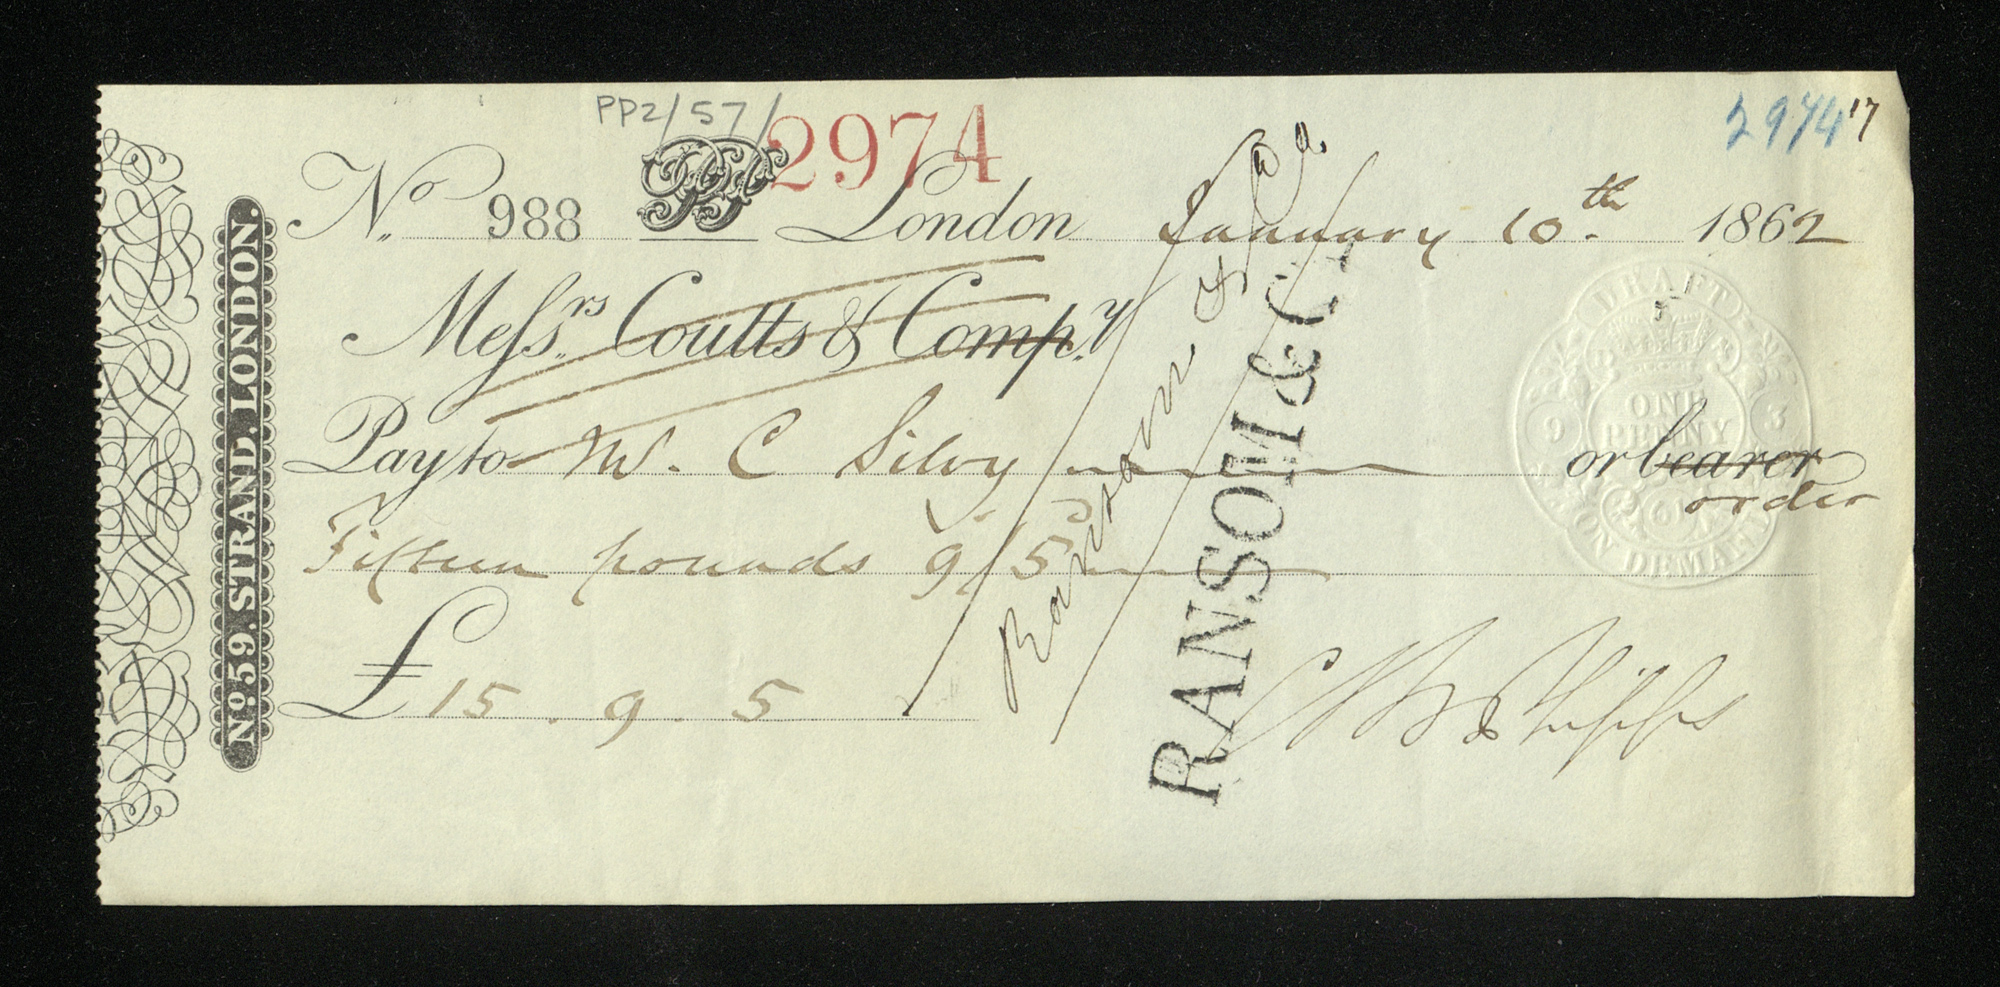 PP2/57/2974
2974 17
No. 988 London January 10th. 1862
Messrs Coutts & Compy
Pay to M. C Silvy or bearer
order
Fifteen pounds 9/5
£15. 9. 5
C B Phipps
No 59. STRAND. LONDON.
Ransom & Co
RANSOM & Co
DRAFT
ONE
PENNY
ON DEMAND